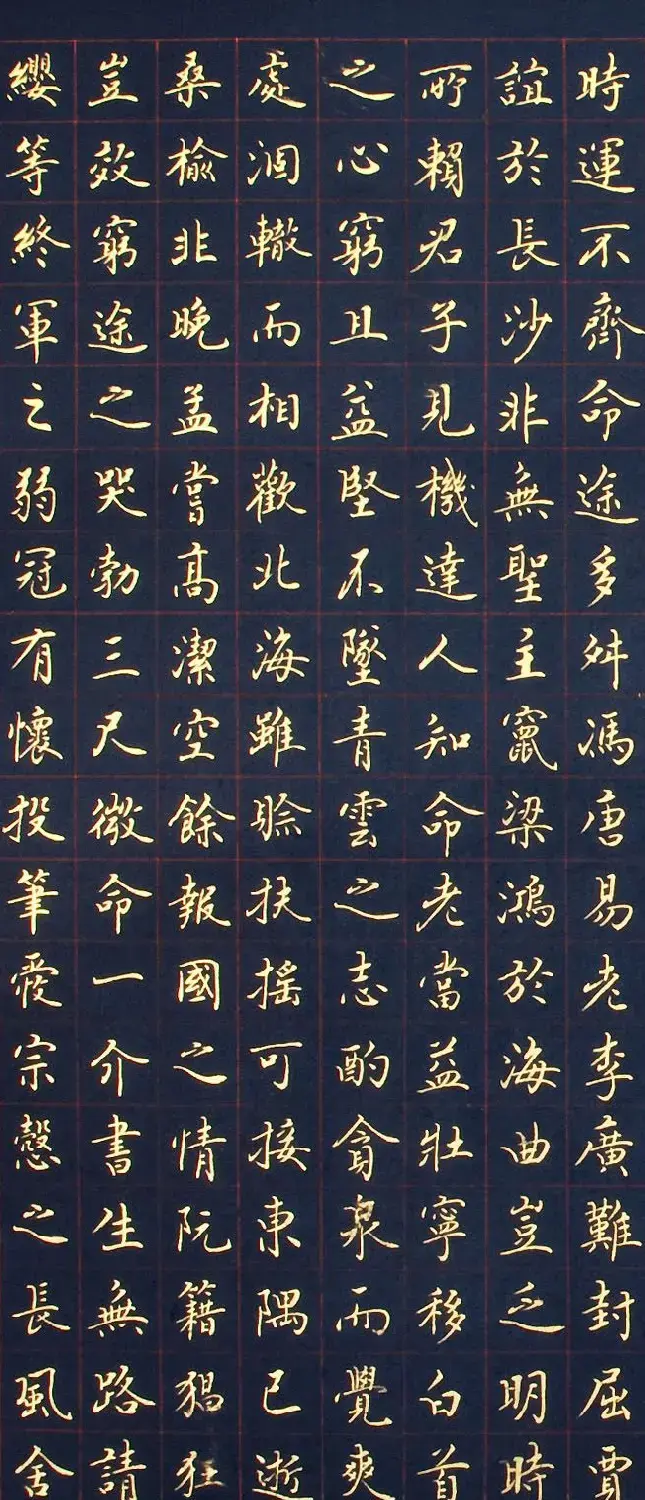 時運不齊命途多舛馮唐易老李廣難封屈賈
誼於長沙非無聖主竄梁鴻於海曲豈乏明時
所賴君子見機達人知命老當益壯寧移白首
之心窮且益堅不墜青雲之志酌貪泉而覺爽
處涸轍而相歡北海雖賒扶搖可接東隅已逝
桑榆非晚孟嘗高潔空餘報國之情阮籍猖狂
豈效窮途之哭勃三尺微命一介書生無路請
纓等終軍之弱冠有懷投筆愛宗愨之長風舍